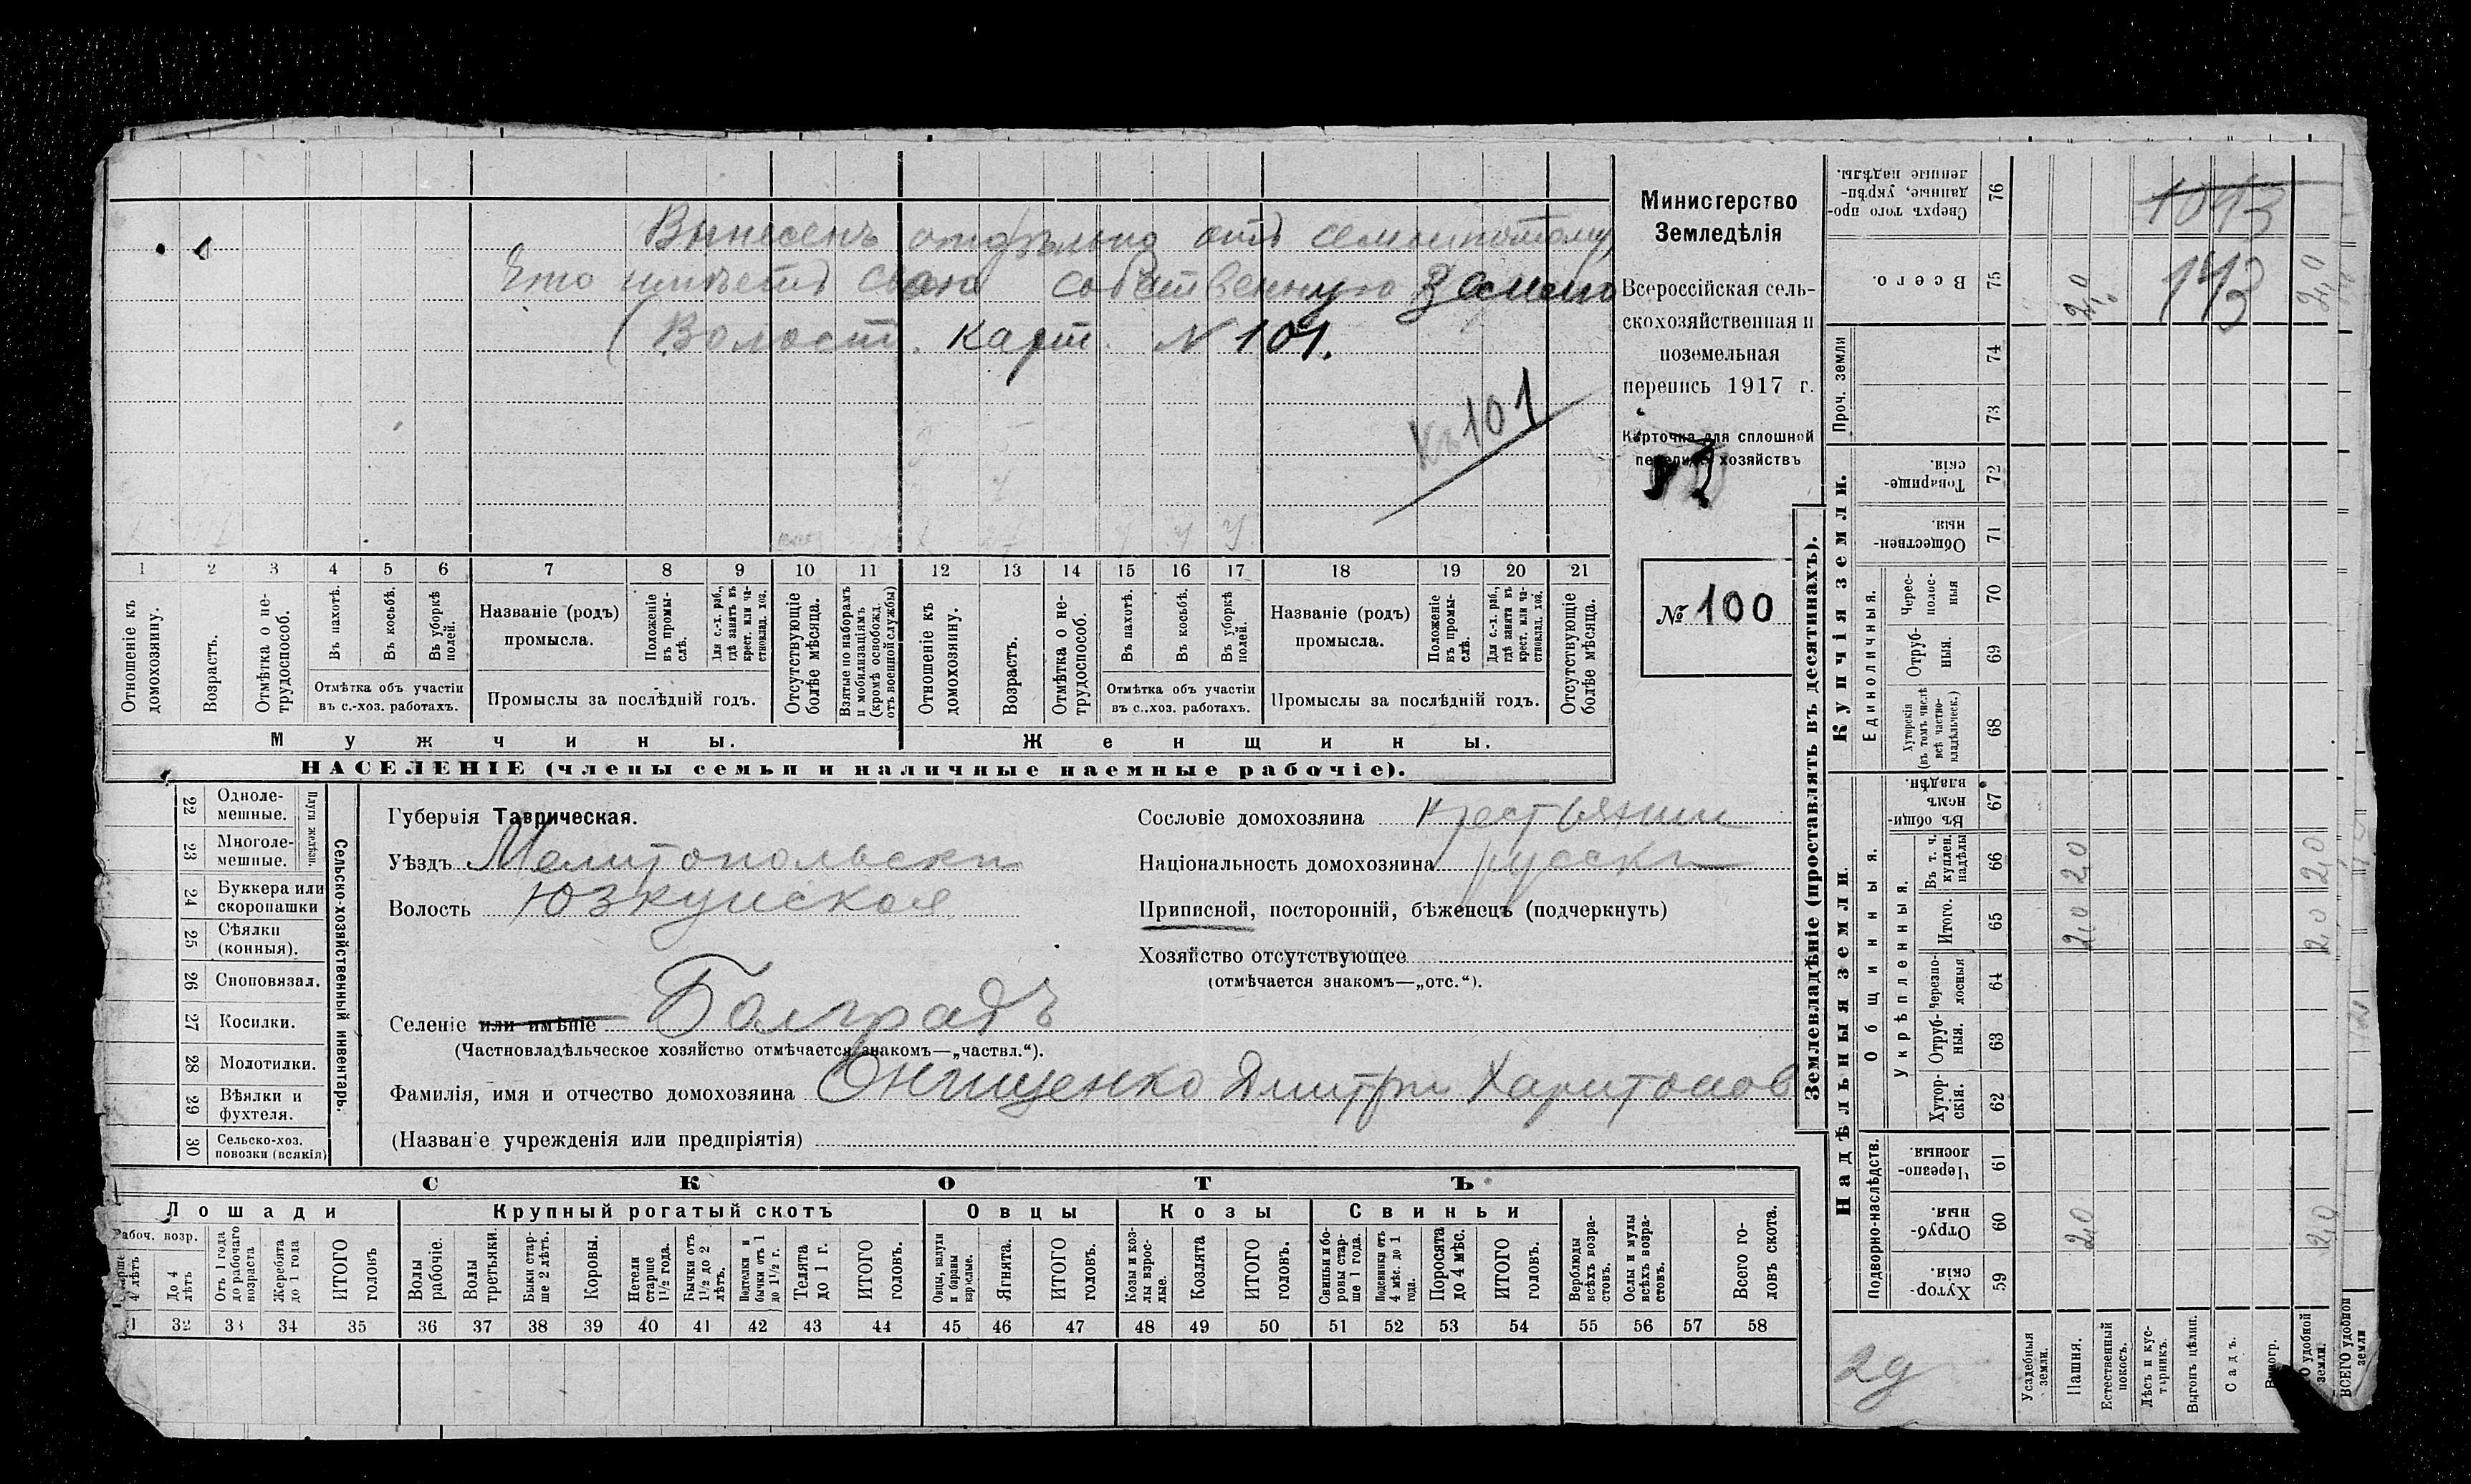 Вынесенъ отдѣльно отъ семьи потому
что имѣетъ свою собственную землю
(Волост. карт. № 101.
къ 101
1 2 3 4 5 6 7 8 9 10 11 12 13 14 15 16 17 18 19 20 21
Отношеніе къ домохозяину.
Возрастъ.
Отмѣтка о нетрудоспособ.
Въ пахотѣ.
Въ косьбѣ.
Въ уборкѣ полей.
Отмѣтка объ участіи
въ с.-хоз. работахъ.
Названіе (родъ)
промысла.
Положеніе въ промыслѣ.
Для с.-х. раб., гдѣ занятъ въ крест. или частновлад. хоз.
Промыслы за послѣдній годъ.
Отсутствующіе болѣе мѣсяца.
Взятые по наборамъ и мобилизаціямъ (кромѣ освобожд. отъ военной службы)
Отношеніе къ домохозяину.
Возрастъ.
Отмѣтка о нетрудоспособ.
Въ пахотѣ.
Въ косьбѣ.
Въ уборкѣ полей.
Отмѣтка объ участіи
въ с..хоз. работахъ.
Названіе (родъ)
промысла.
Положеніе въ промыслѣ.
Для с.-х. раб., гдѣ занята въ крест. или частновлад. хоз.
Промыслы за послѣдній годъ.
Отсутствующіе болѣе мѣсяца.
Мужчины.
Женщины.
НАСЕЛЕНІЕ (члены семьи и наличные наемные рабочіе).
Министерство
Земледѣлія
Всероссійская сель-
скохозяйственная и
поземельная
перепись 1917 г.
Карточка для сплошной
переписи хозяйствъ
№ 100
Сельско-хозяйственный инвентарь.
Плуги желѣзн.
22 Одноле-
мешные.
23 Многоле-
мешные.
24 Буккера или
скоропашки
25 Сѣялки
(конныя).
26 Сноповязал.
27 Косилки.
28 Молотилки.
29 Вѣялки и
фухтеля.
30 Сельско-хоз.
повозки (всякія)
Губернія Таврическая.
Уѣздъ Мелитопольскій
Волость Юзкуйская
Селеніе или имѣніе Болградъ
(Частновладѣльческое хозяйство отмѣчается знакомъ—„частвл.“).
Фамилія, имя и отчество домохозяина Онищенко Дмитрій Харитонов
(Названіе учрежденія или предпріятія)
Сословіе домохозяина крестьянин
Національность домохозяина русскій
Приписной, посторонній, бѣженецъ (подчеркнуть)
Хозяйство отсутствующее
(отмѣчается знакомъ—„отс.“).
СКОТЪ
Лошади
Крупный рогатый скотъ
Овцы
Козы
Свиньи
Рабоч. возр.
4 лѣтъ
До 4 лѣтъ
Отъ 1 года до рабочаго возраста
Жеребята до 1 года
ИТОГО головъ
Волы рабочіе.
Волы третьяки.
Быки старше 2 лѣтъ.
Коровы.
Нетели старше 1½ года.
Бычки отъ 1½ до 2 лѣтъ.
Подтелки и бычки отъ 1 до 1½ г.
Телята до 1 г.
ИТОГО головъ.
Овцы, валухи и бараны взрослые.
Ягнята.
ИТОГО головъ.
Козы и козлы взрослые.
Козлята
ИТОГО головъ.
Свиньи и боровы старше 1 года.
Подсвинки отъ 4 мѣс. до 1 года.
Поросята до 4 мѣс.
ИТОГО головъ.
Верблюды всѣхъ возрастовъ.
Ослы и мулы всѣхъ возрастовъ.
Всего головъ скота.
32 33 34 35 36 37 38 39 40 41 42 43 44 45 46 47 48 49 50 51 52 53 54 55 56 57 58
Землевладѣніе (проставлять въ десятинахъ).
Купчія земли.
Надѣльныя земли.
Проч. земли
Единоличныя.
Общинныя.
Укрѣпленныя.
Подворно-наслѣдств.
Сверхъ того проданные, укрѣпленные надѣлы. 76
1043
Всего. 75
2,0
143
2,0
74
73
Товарищескія. 72
Общественныя. 71
Черезполосныя 70
Отрубныя. 69
Хуторскія (въ томъ числѣ всѣ частновладѣльческ.) 68
Въ общинномъ владѣн. 67
Въ т. ч. куплен. надѣлы 66 2,0 2,0
Итого. 65 2,0 2,0
Черезполосныя 64
Отрубныя. 63
Хуторскія. 62
Черезполосныя. 61
Отрубныя. 60 2,0 2,0
Хуторскія 59
2д
Усадебныя земли.
Пашня.
Естественный покосъ.
Лѣсъ и кустарникъ.
Выгонъ цѣлин.
Садъ.
удобной земли.
ВСЕГО удобной земли